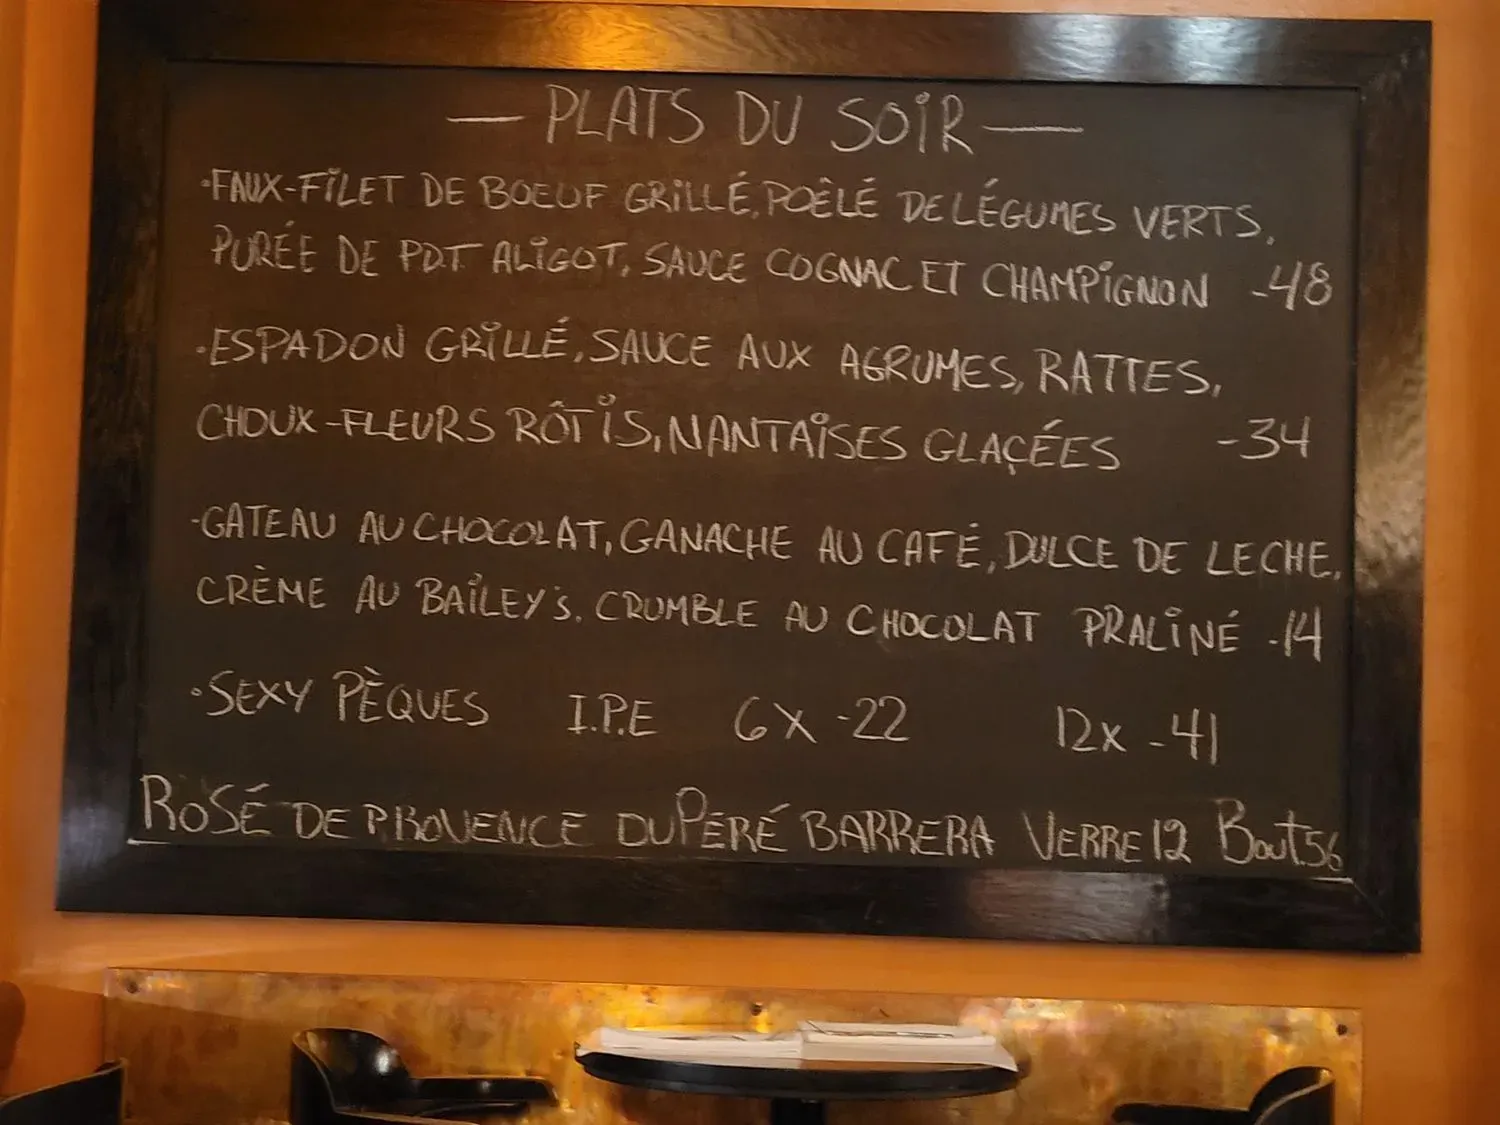 — PLATS DU SOIR —
·FAUX-FILET DE BOEUF GRILLÉ, POÊLÉ DE LÉGUMES VERTS,
PURÉE DE PDT ALIGOT, SAUCE COGNAC ET CHAMPIGNON -48
·ESPADON GRILLÉ, SAUCE AUX AGRUMES, RATTES,
CHOUX-FLEURS RÔTIS, NANTAISES GLAÇÉES -34
·GATEAU AU CHOCOLAT, GANACHE AU CAFÉ, DULCE DE LECHE,
CRÈME AU BAILEY'S, CRUMBLE AU CHOCOLAT PRALINÉ -14
·SEXY PÈQUES I.P.E 6X -22 12X -41
ROSÉ DE PROVENCE DU PÉRÉ BARRERA VERRE 12 Bout. 56